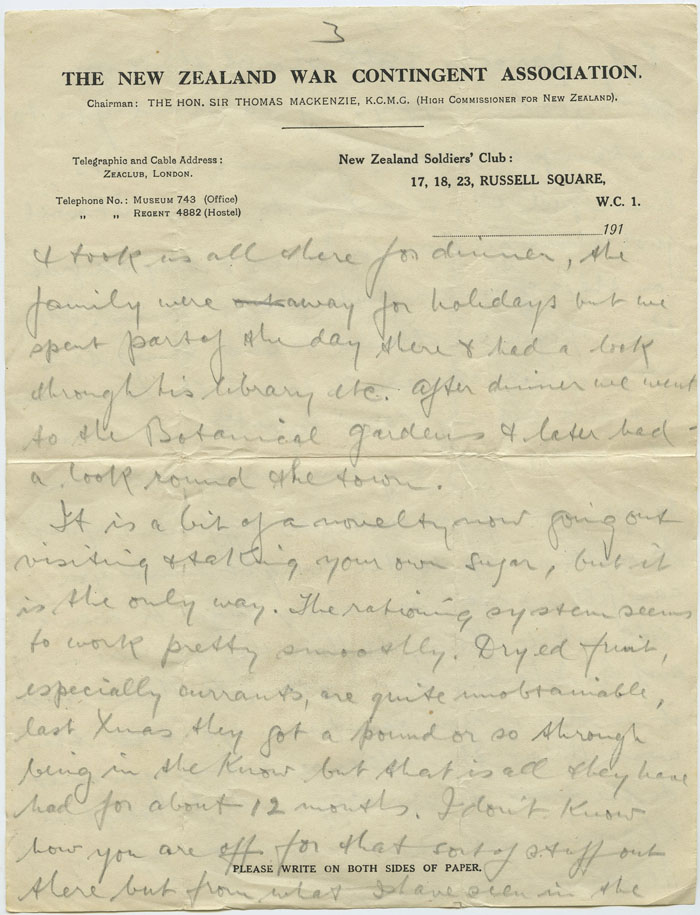 3
THE NEW ZEALAND WAR CONTINGENT ASSOCIATION.
Chairman: THE HON. SIR THOMAS MACKENZIE, K.C.M.G. (HIGH COMMISSIONER FOR NEW ZEALAND).
Telegraphic and Cable Address:
ZEACLUB, LONDON.
Telephone No.: MUSEUM 743 (Office)
„ „ REGENT 4882 (Hostel)
New Zealand Soldiers' Club:
17, 18, 23, RUSSELL SQUARE,
W.C. 1.
191
& took us all there for dinner, the
family were away for holidays but we
spent part of the day there & had a look
through his library etc. After dinner we went
to the Botanical gardens & later had
a look round the town.
It is a bit of a novelty now going out
visiting & taking your own sugar, but it
is the only way. The rationing system seems
to work pretty smoothly. Dryed fruit,
especially currants, are quite unobtainable,
last Xmas they got a pound or so through
being in the know but that is all they have
had for about 12 months. I don't know
how you are off for that sort of stuff out
there but from what I have seen in the
PLEASE WRITE ON BOTH SIDES OF PAPER.